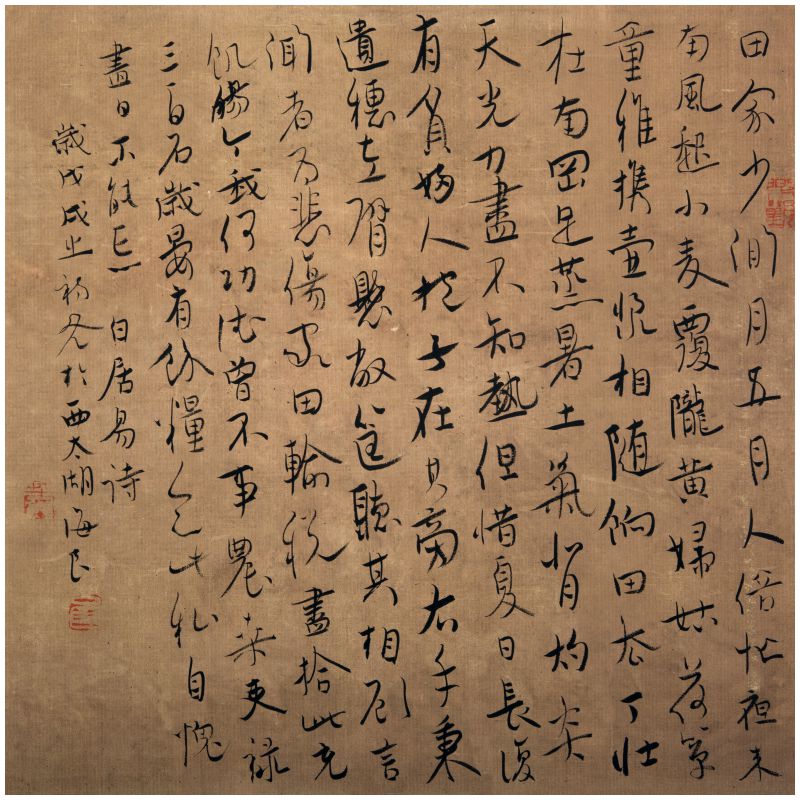 田家少閒月五月人倍忙夜来
南風起小麦覆隴黄婦姑荷箪
童稚携壺漿相随餉田去丁壮
在南岡足蒸暑土氣背灼炎
天光力盡不知熱但惜夏日長復
有貧婦人抱子在其旁右手秉
遺穗左臂懸敝筐聽其相顧言
聞者为悲傷家田輸税盡拾此充
飢腸今我何功德曾不事農桑吏禄
三百石歲晏有餘糧念此私自愧
盡日不能忘 白居易詩
歲戊戌之初冬於西太湖海良